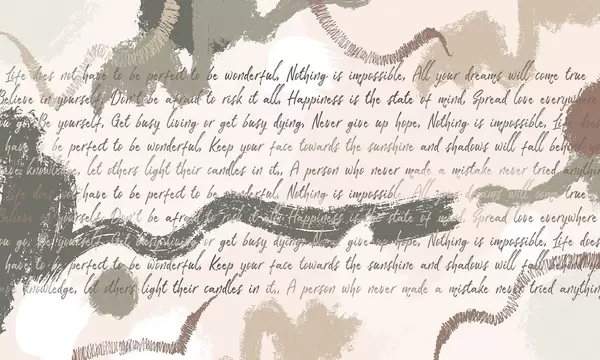 Life does not have to be perfect to be wonderful, Nothing is impossible, All your dreams will come true
Believe in yourself, Don't be afraid to risk it all, Happiness is the state of mind, Spread love everywhere
you go, Be yourself, Get busy living or get busy dying, Never give up hope, Nothing is impossible, Life does
have to be perfect to be wonderful, Keep your face towards the sunshine and shadows will fall behind you
knowledge, let others light their candles in it, A person who never made a mistake never tried anything
Life does have to be perfect to be wonderful, Nothing is impossible, All your dreams will come true
Believe in yourself, Don't be afraid to risk it all, Happiness is the state of mind, Spread love everywhere
you go, Be yourself, Get busy living or get busy dying, Never give up hope, Nothing is impossible, Life does
have to be perfect to be wonderful, Keep your face towards the sunshine and shadows will fall
knowledge, let others light their candles in it, A person who never made a mistake never tried anything